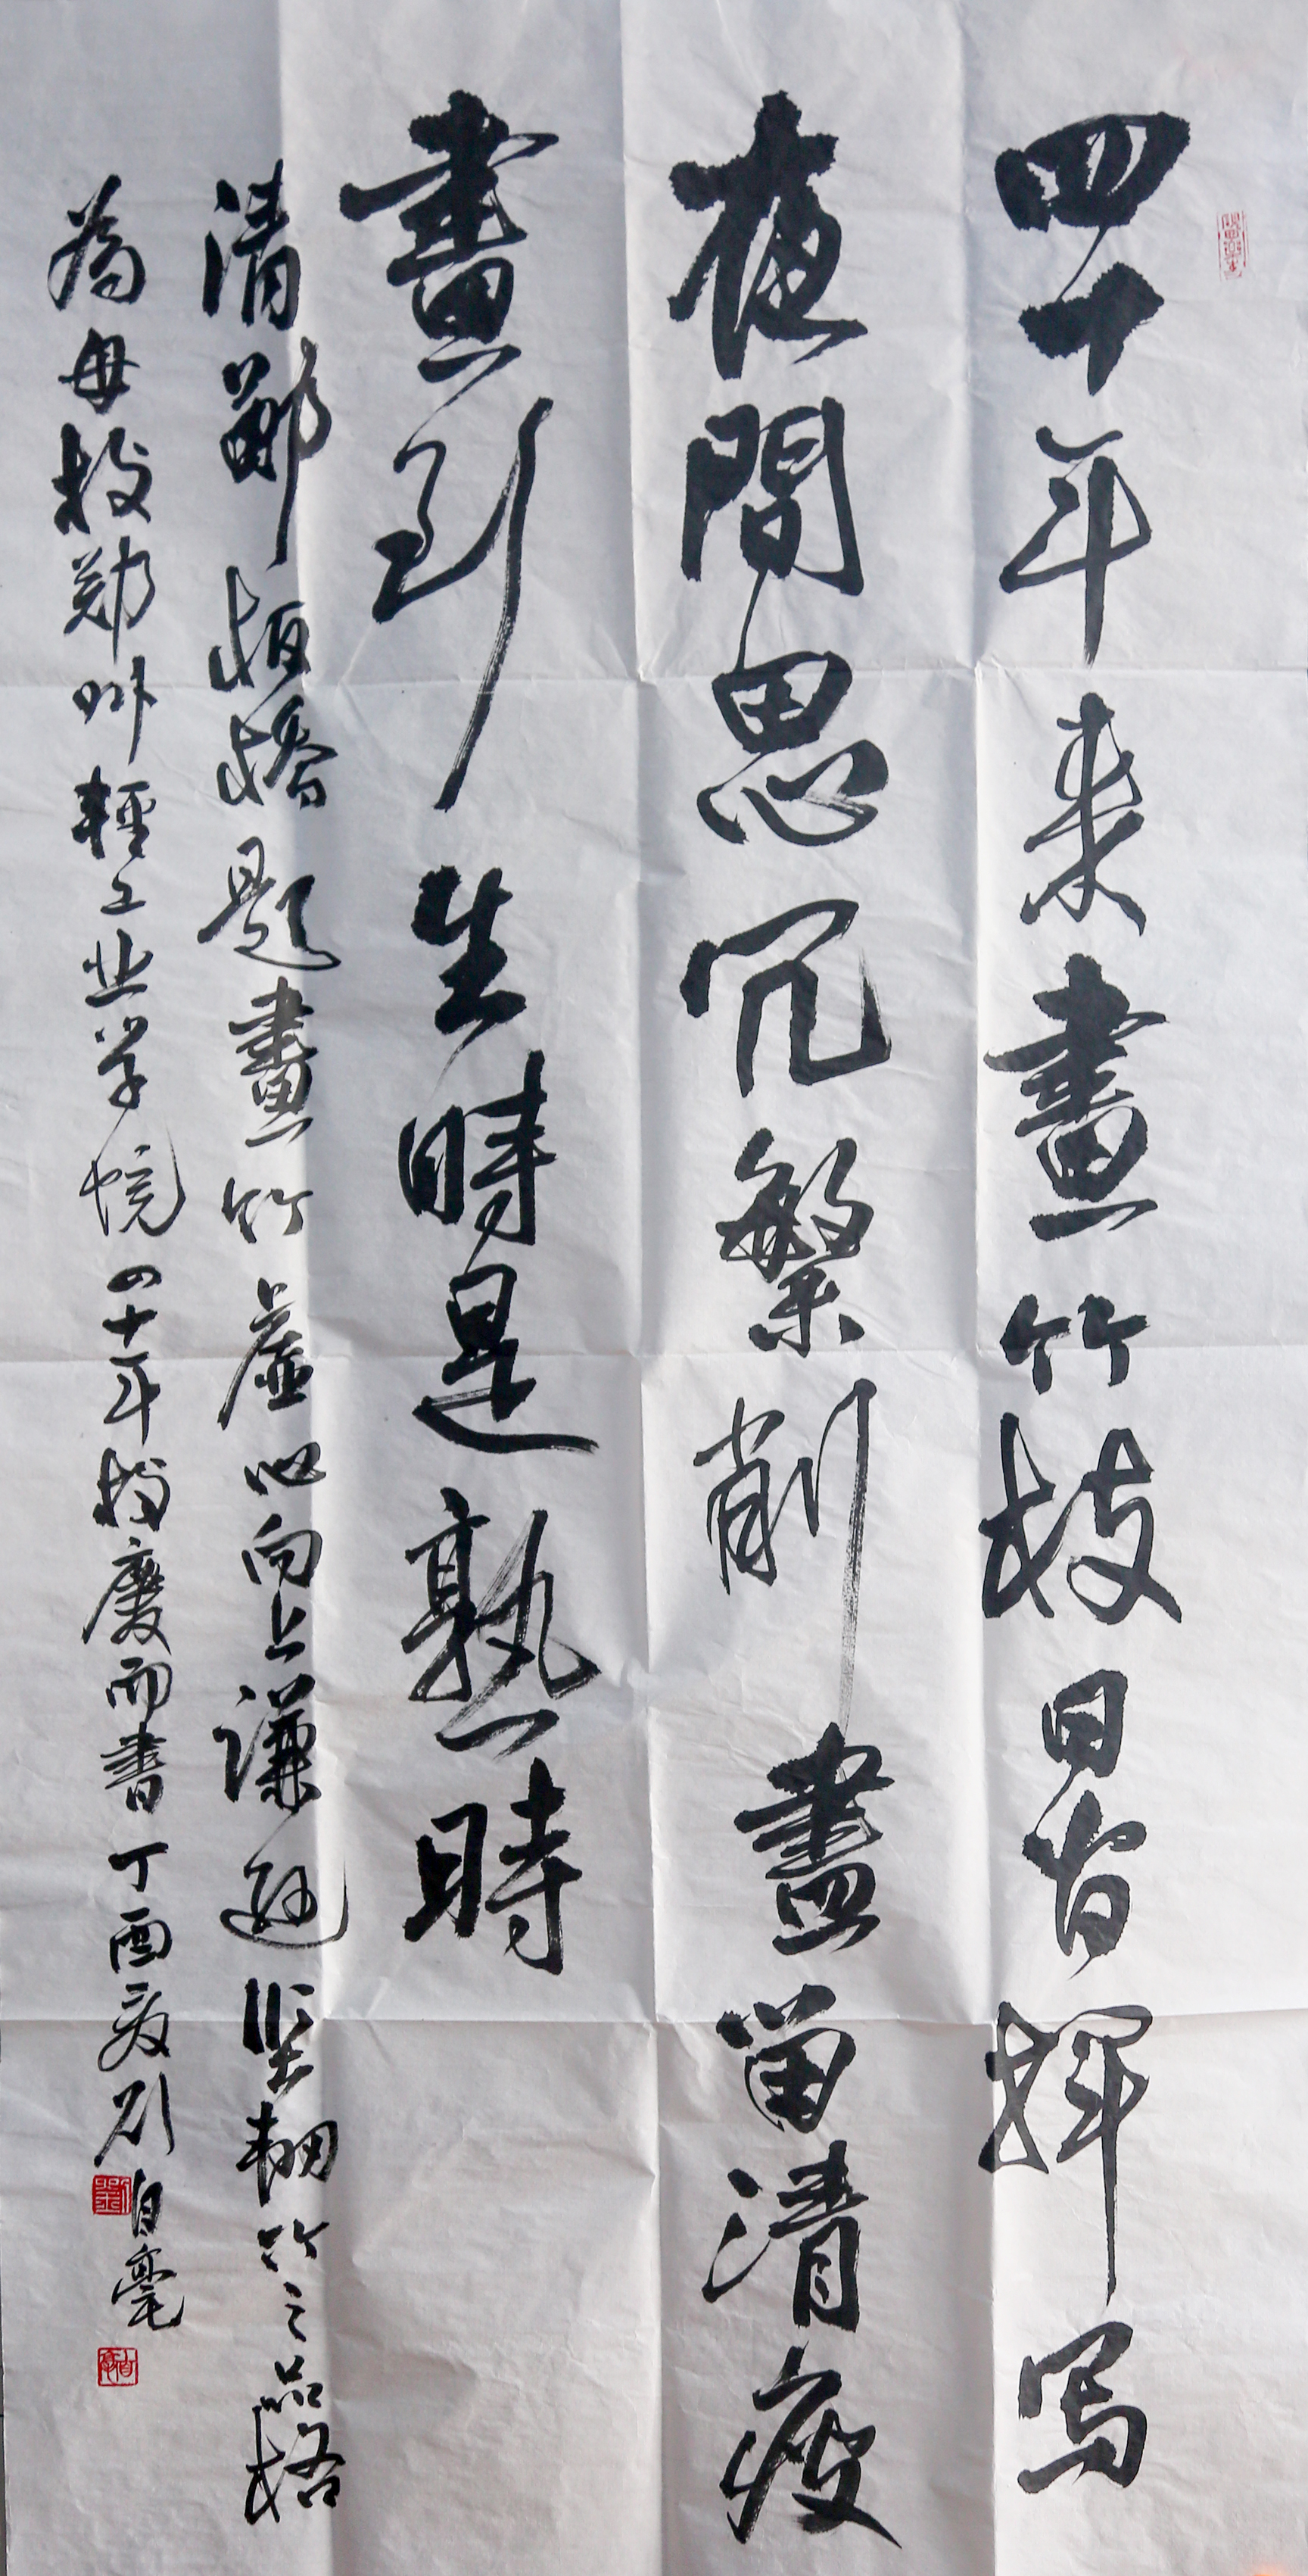 四十年来畫竹枝日省揮写
夜間思冗繁削盡留清瘦
畫到生時是熟時
清鄭板橋題畫竹虚心向上謙遜坚韌竹之品格
為母校鄭州輕工业学院四十年校慶而書丁酉夏刘自毫